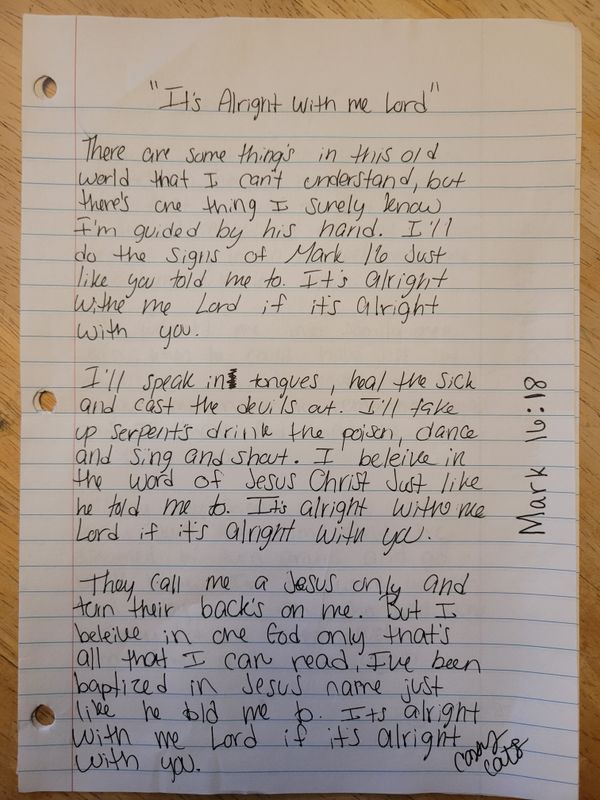 "It's Alright with me Lord"
There are some thing's in this old
world that I can't understand, but
there's one thing I surely know
I'm guided by his hand. I'll
do the signs of Mark 16 Just
like you told me to. It's alright
withe me Lord if it's alright
with you.
I'll speak in tongues, heal the sick
and cast the devil's out. I'll take
up serpent's drink the poison, dance
and sing and shout. I beleive in
the word of Jesus Christ Just like
he told me to. It's alright with me
Lord if it's alright with you.
They call me a Jesus only and
turn their back's on me. But I
beleive in one God only that's
all that I can read, I've been
baptized in Jesus name just
like he told me to. Its alright
with me Lord if it's alright
with you.
Mark 16:18